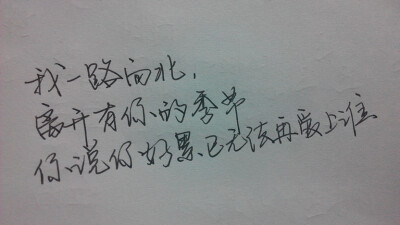 我一路向北,
离开有你的季节
你说你好累已无法再爱上谁